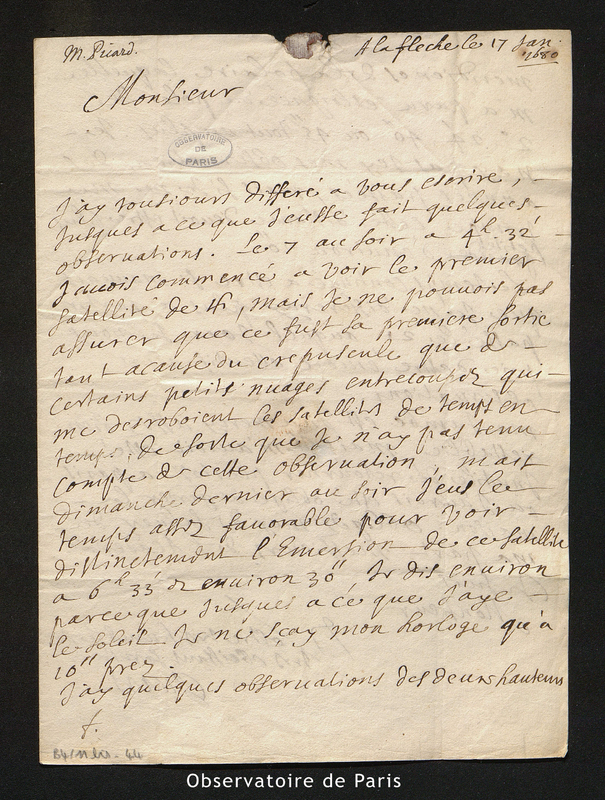 M. Picard.
A la fleche le 17 Jan.
1680
Monsieur
OBSERVATOIRE
DE
PARIS
J'ay tousiours differé a vous escrire,
Jusques a ce que J'eusse fait quelques
observations. Le 7 au soir a 4h. 32'
J'avois commencé a voir le premier
satellite de ♃, mais Je ne pouvois pas
assurer que ce fust sa premiere sortie
tant acause du crepuscule que de
certains petits nuages entrecoupez qui
me desroboient les satellites de temps en
temps, de sorte que Je n'ay pas tenu
compte de cette observation, mais
dimanche dernier au soir J'eus le
temps assez favorable pour voir
distinctement l'Emersion de ce satellite
a 6h 33' et environ 30" Je dis environ
parce que Jusques a ce que J'aye
le soleil Je ne sçay mon horloge qu'a
10" prez.
J'ay quelques observations des hauteurs
B4/11 bis - 44
Observatoire de Paris